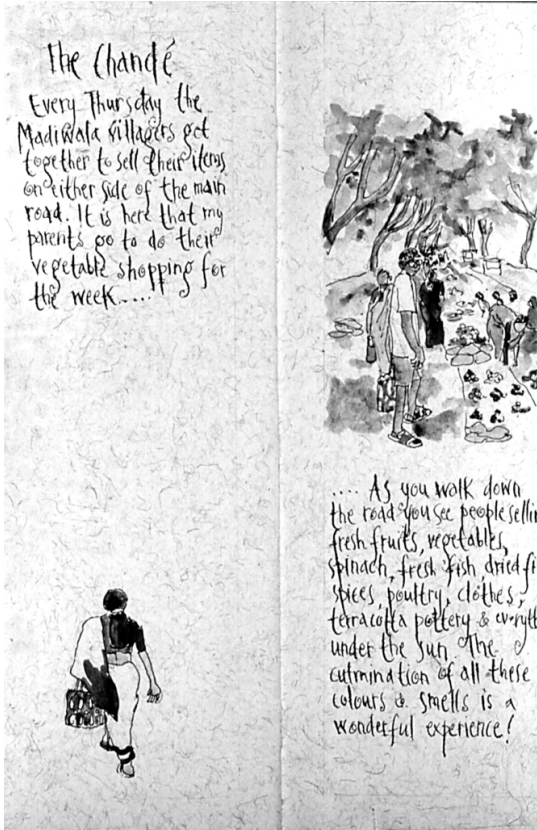 The Chandé
Every Thursday the
Madiwala villagers get
together to sell their items
on either side of the main
road. It is here that my
parents go to do their
vegetable shopping for
the week.....
.... As you walk down
the road you see people sellin
fresh fruits, vegetables,
spinach, fresh fish dried fi
spices, poultry, clothes,
terracotta pottery & everyth
under the sun. The
culmination of all these
colours & smells is a
wonderful experience!